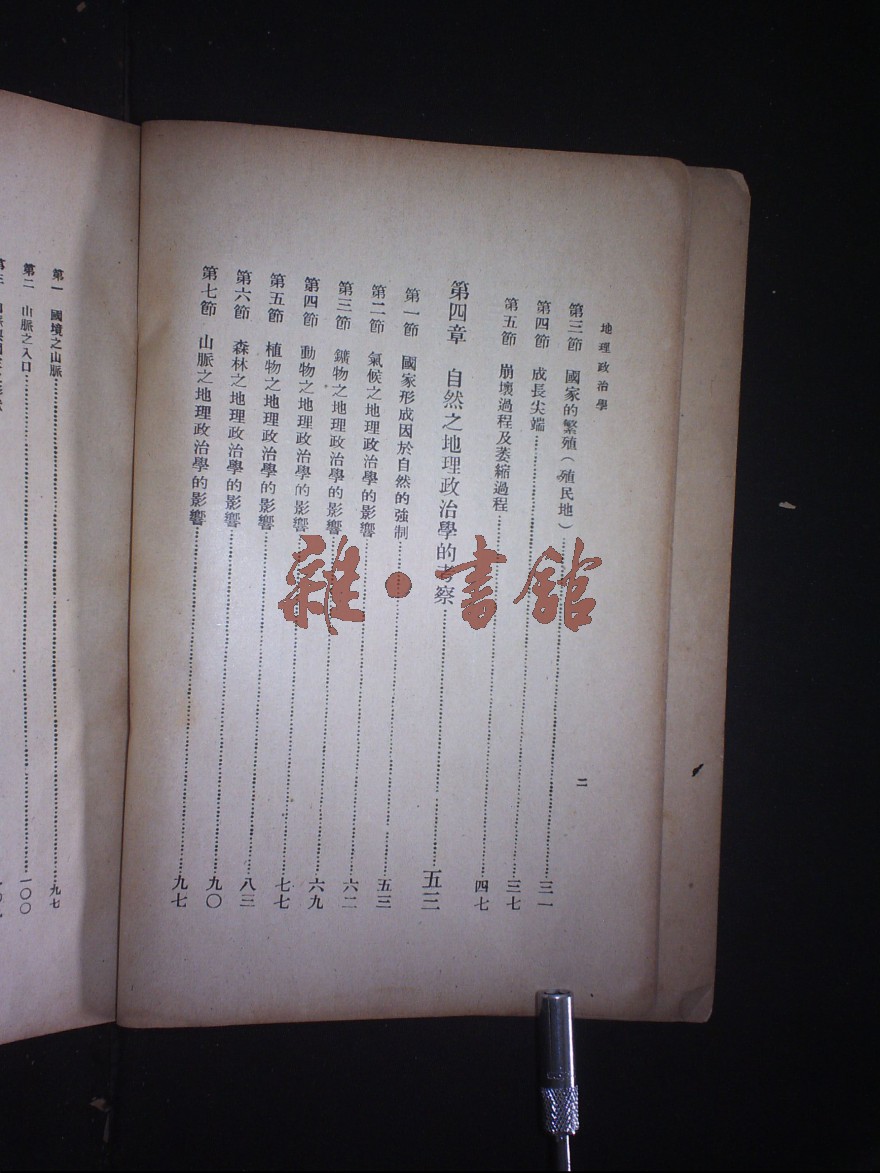 地理政治學
二
第三節 國家的繁殖(殖民地)……三一
第四節 成長尖端……三七
第五節 崩壞過程及萎縮過程……四七
第四章 自然之地理政治學的考察……五三
第一節 國家形成因於自然的強制……五三
第二節 氣候之地理政治學的影響……六二
第三節 鑛物之地理政治學的影響……六九
第四節 動物之地理政治學的影響……七七
第五節 植物之地理政治學的影響……八三
第六節 森林之地理政治學的影響……九〇
第七節 山脈之地理政治學的影響……九七
第一 國境之山脈……九七
第二 山脈之入口……一〇〇
雜·書館